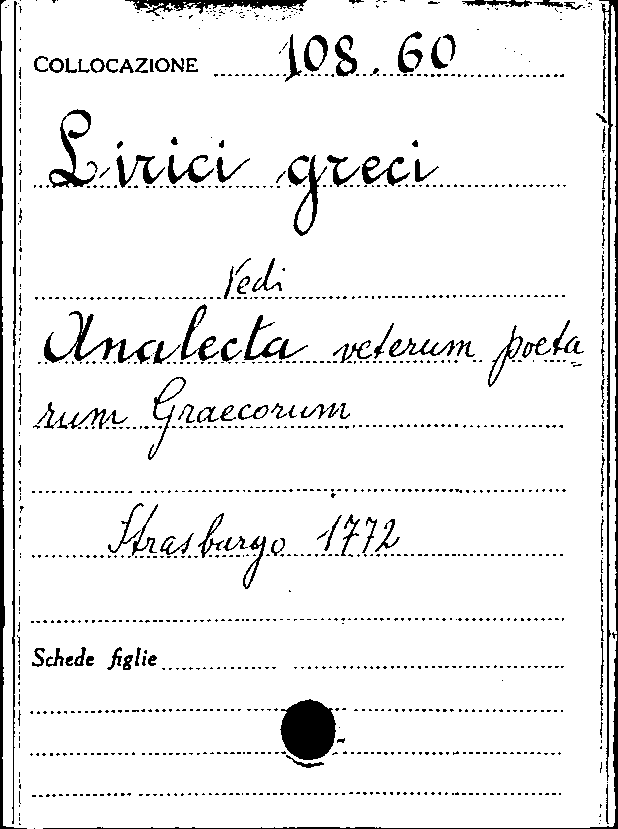 COLLOCAZIONE 108.60
Lirici greci
Vedi
Analecta veterum poeta=
rum Graecorum
Strasburgo 1772
Schede figlie